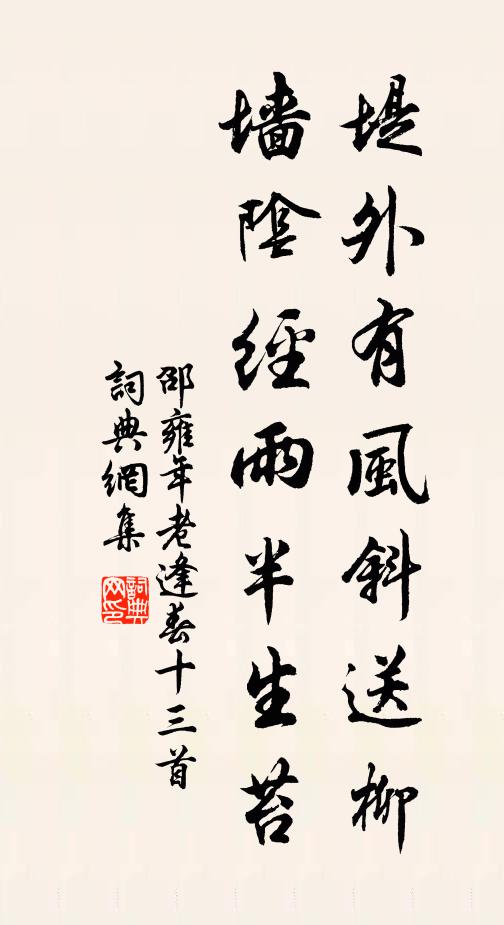 堤外有風斜送柳
墻陰經雨半生苔
邵雍年老逢春十三首
詞典網集
詞典網印